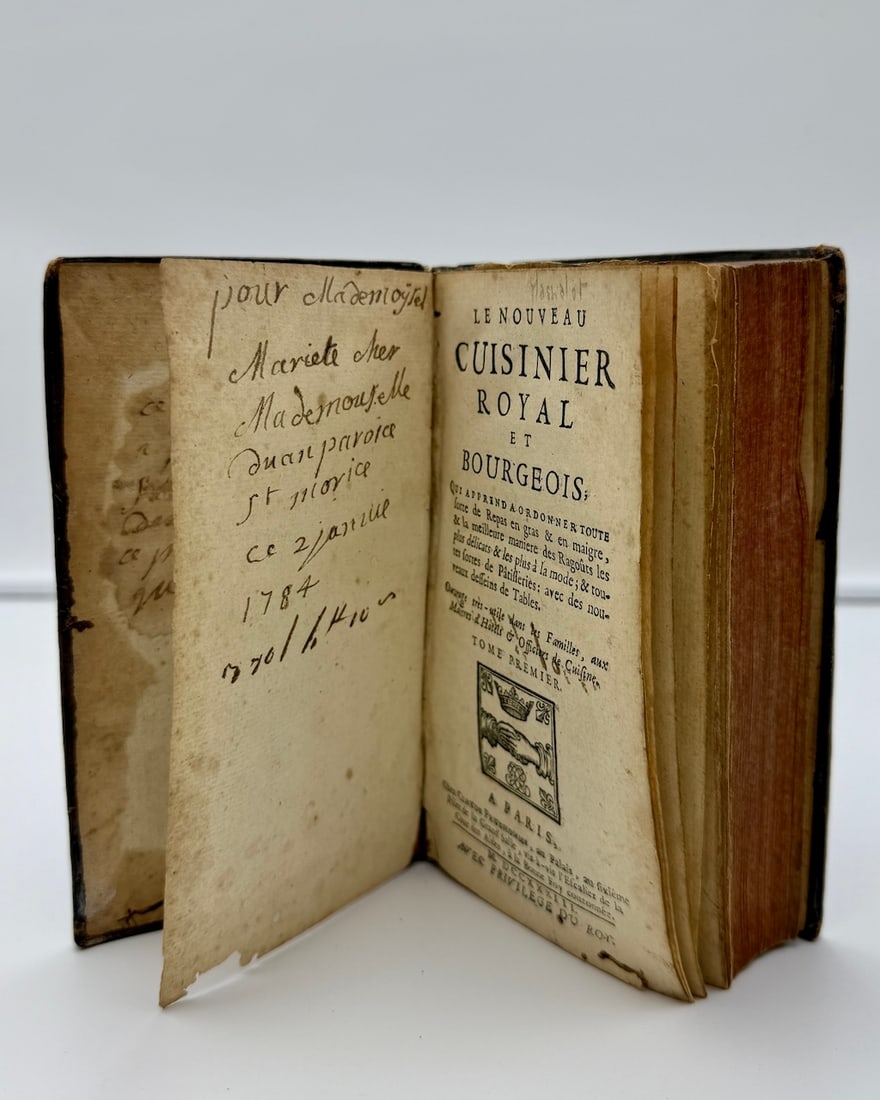 pour Mademoysel
Mariete cher
Mademouselle
duan paroice
st morice
ce 2 janvie
1784
LE NOUVEAU
CUISINIER
ROYAL
ET
BOURGEOIS;
QUI APPREND A ORDONNER TOUTE
sorte de Repas en gras & en maigre,
& la meilleure maniere des Ragoûts les
plus délicats & les plus à la mode; & tou-
tes sortes de Pâtisseries: avec des nou-
veaux desseins de Tables.
Ouvrage très-utile dans les Familles, aux
Maîtres d'Hôtels & Officiers de Cuisine.
TOME PREMIER.
A PARIS,
Chez CLAUDE PRUDHOMME, au Palais, au sixiéme
Pilier de la Grand'Salle, vis-à-vis l'Escalier de la
Cour des Aides, à la Bonne Foy couronnée.
M. DCCXXXIII.
AVEC PRIVILEGE DU ROY.